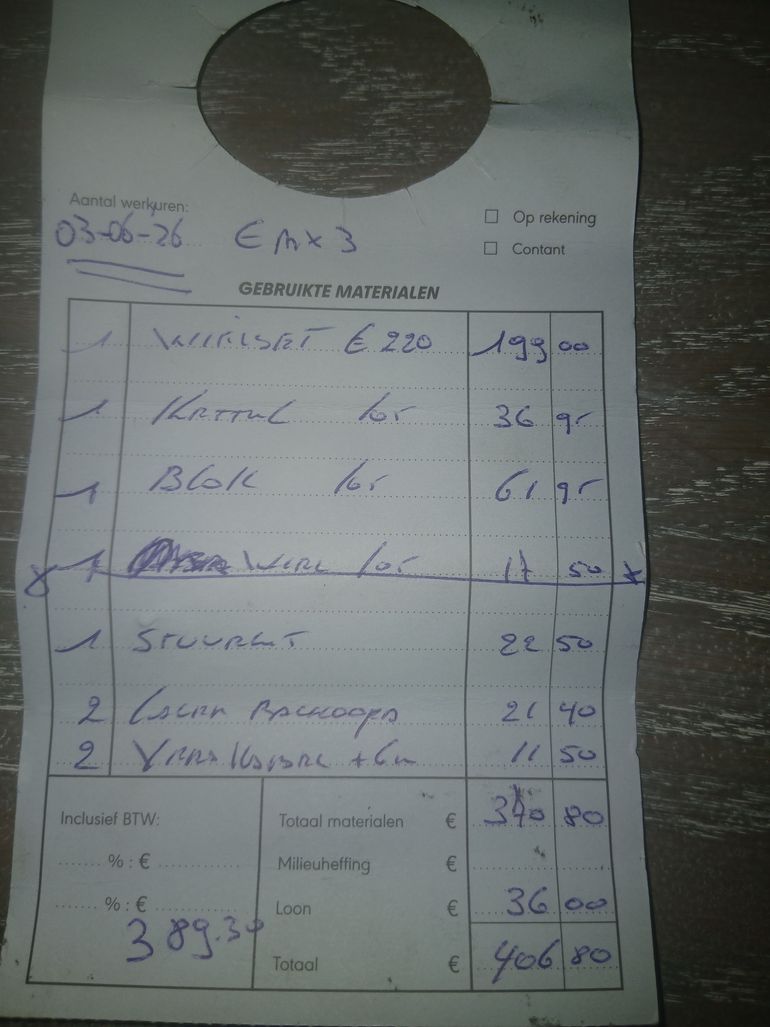 Aantal werkuren:
Op rekening
03-06-26 EMX 3
Contant
GEBRUIKTE MATERIALEN
1 WIELSET € 220 199 00
1 KETTING 36 95
1 BLOK 61 95
1 WIEL 17 50
1 22 50
2 21 40
2 KABEL 11 50
Inclusief BTW: Totaal materialen € 370 80
% : € Milieuheffing €
% : € Loon € 36 00
389.30
Totaal € 406 80